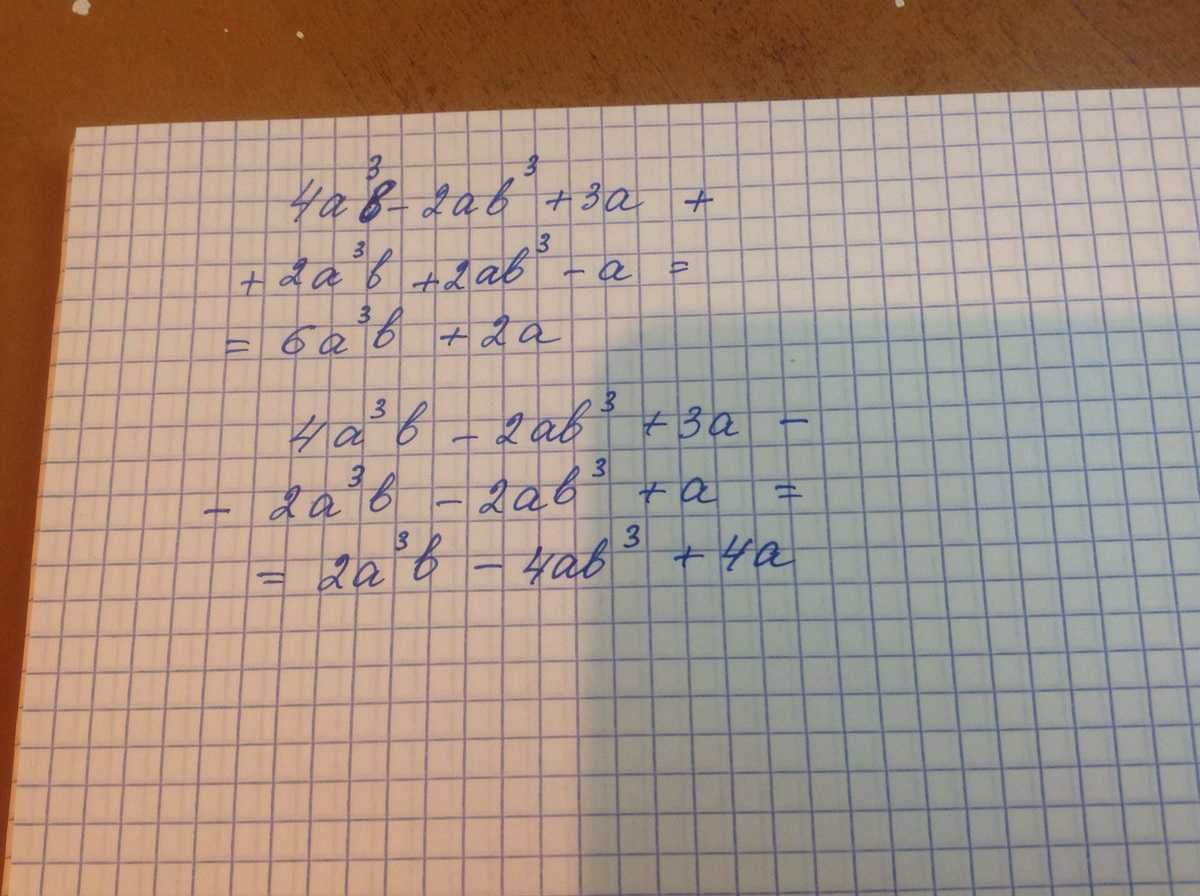 4a³b - 2ab³ + 3a +
+ 2a³b + 2ab³ - a =
= 6a³b + 2a
4a³b - 2ab³ + 3a -
- 2a³b - 2ab³ + a =
= 2a³b - 4ab³ + 4a